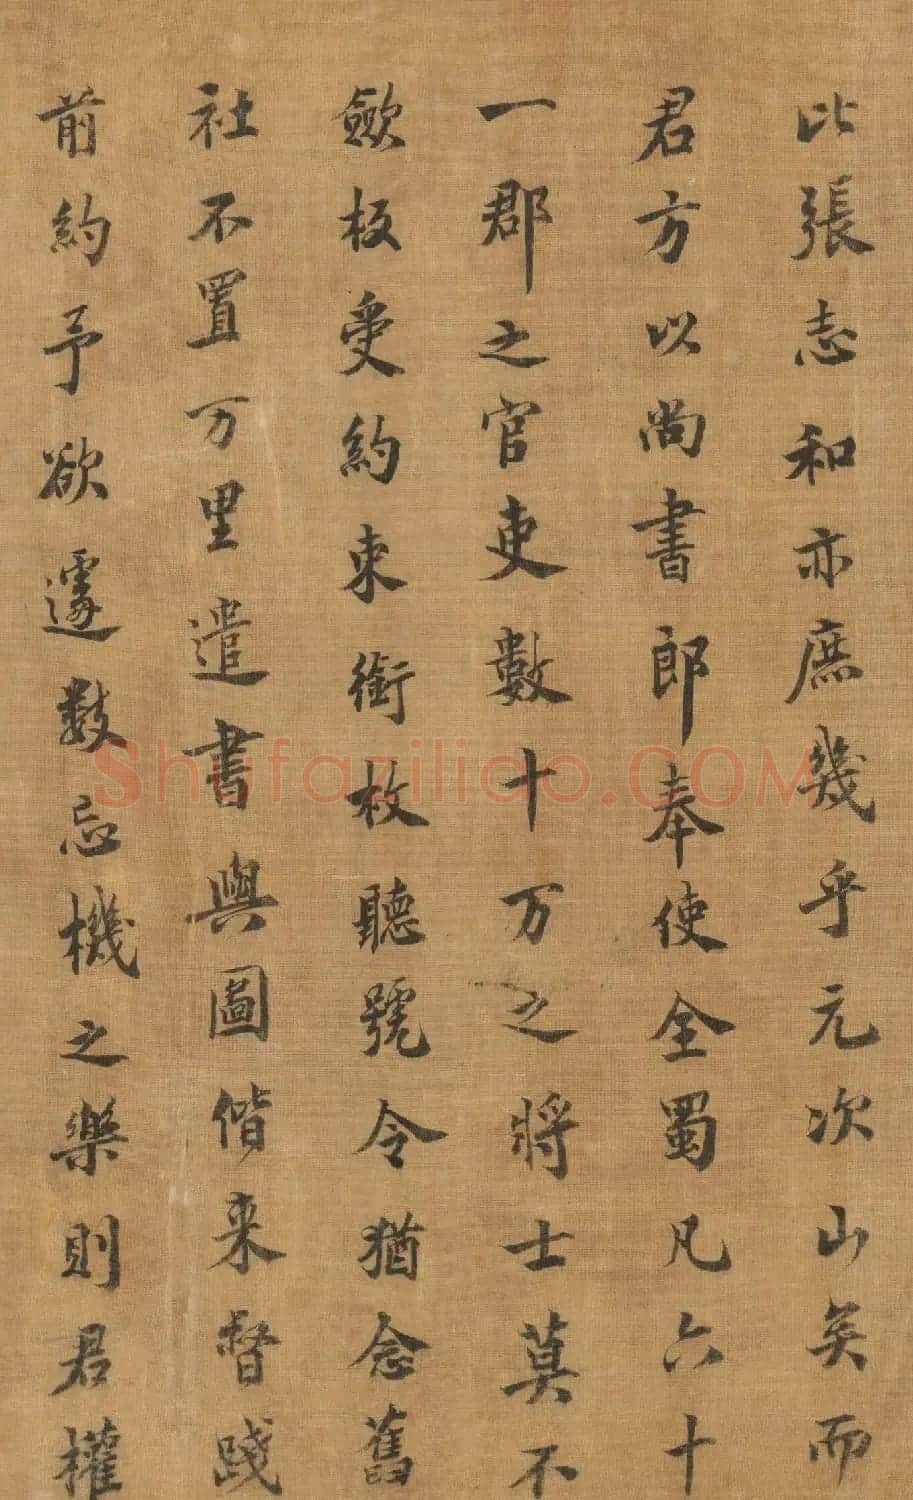 比張志和亦庶幾乎元次山矣而
君方以尚書郎奉使全蜀凡六十
一郡之官吏數十万之將士莫不
歛板受約束銜枚聽號令猶念舊
社不置万里遣書與圖偕来督踐
前約予欲遽數忘機之樂則君權
Shufaziliao.COM